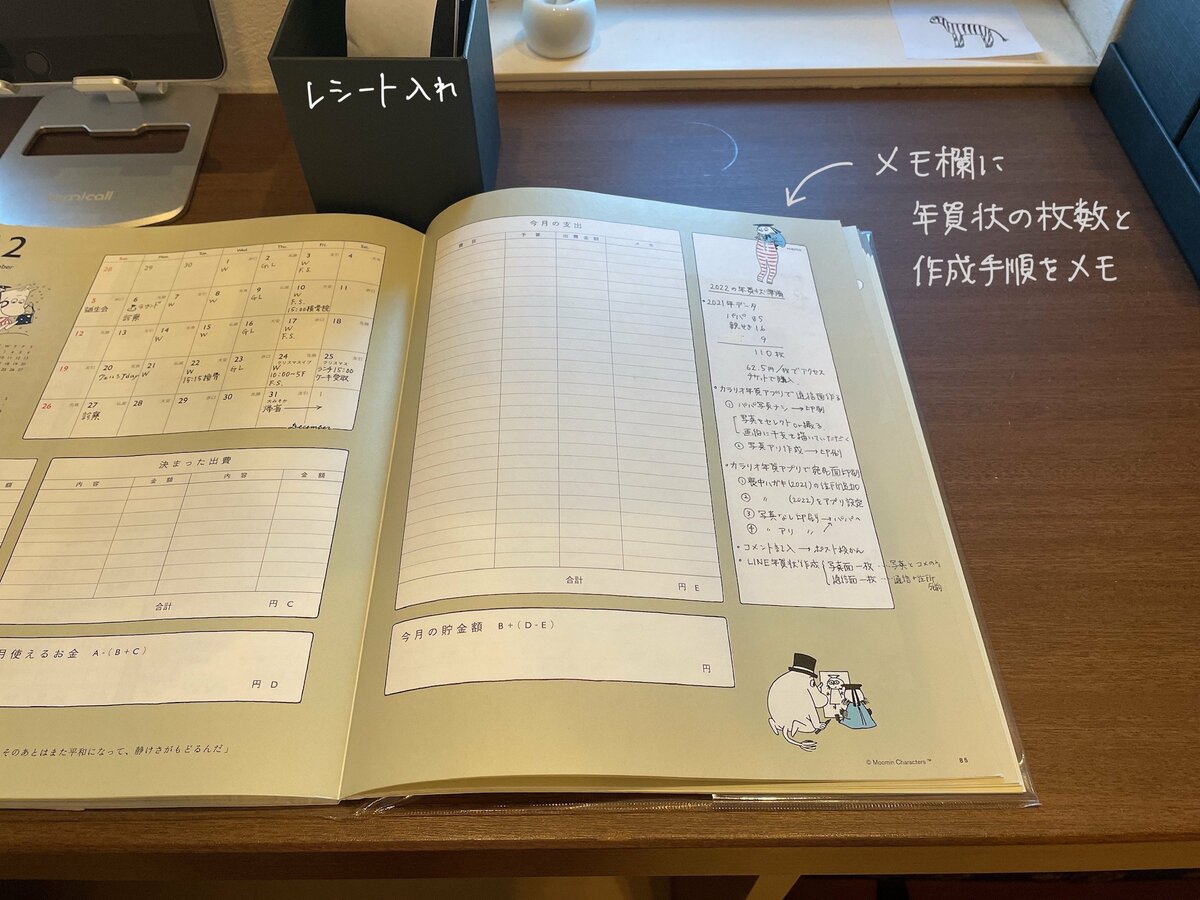 レシート入れ
メモ欄に
年賀状の枚数と
作成手順をメモ
2
Sun. Mon. Tue. Wed. Thu. Fri. Sat.
28 29 30 1 2 3 4
W GL W
F.S.
5 6 7 8 9 10 11
誕生会 診療 W W GL W
F.S.
15:00接骨院
12 13 14 15 16 17 18
W W GL W
F.S.
19 20 21 22 23 24 25
W W GL クリスマスイブ クリスマス
15:15接骨 10:00~SF ランチ15:00
F.S. ケーキ受取
26 27 28 29 30 31 1
診療 大みそか
帰省
December
決まった出費
内容 金額 内容 金額
合計 円 C
月使えるお金 A-(B+C)
円 D
そのあとはまた平和になって、静けさがもどるんだ」
今月の支出
費目 予算 出費金額 メモ
合計 円 E
今月の貯金額 B+(D-E)
円
memo
2022の年賀状準備
・2021年データ
パパ 85
親せき16
9
110枚
62.5円/枚でアクセス
チケットで購入
・カラリオ年賀アプリで通信面作る
① パパ写真ナシ→印刷
写真をセレクトor撮る
画伯に干支を描いていただく
② 写真アリ作成→印刷
・カラリオ年賀アプリで宛名面印刷
①喪中ハガキ(2021)の住所追加
② 〃 (2022)をアプリ設定
③ 写真なし印刷→パパへ
④ 〃 アリ 〃
・コメント記入→ポスト投かん
・LINE年賀状作成
写真面一枚…写真とコメのみ
通信面一枚…通信+住所
© Moomin Characters™
85